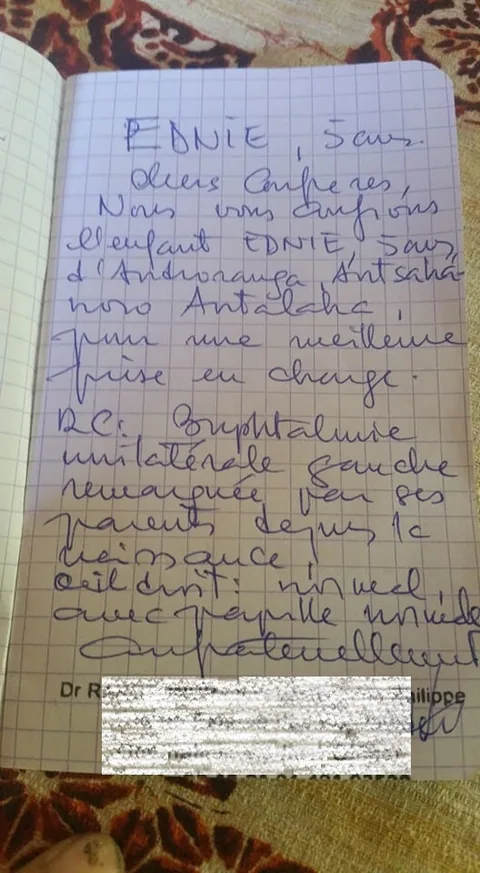 EDNIE, 5 ans.
Chers Confrères,
Nous vous confions
l'enfant EDNIE, 5 ans,
d'Androranga, Antsaha-
noro Antalaha,
pour une meilleure
prise en charge.
RC: Buphtalmie
unilatérale gauche
remarquée par ses
parents depuis la
naissance,
œil droit: normal,
avec papille normale
Confraternellement
Dr R
hilippe